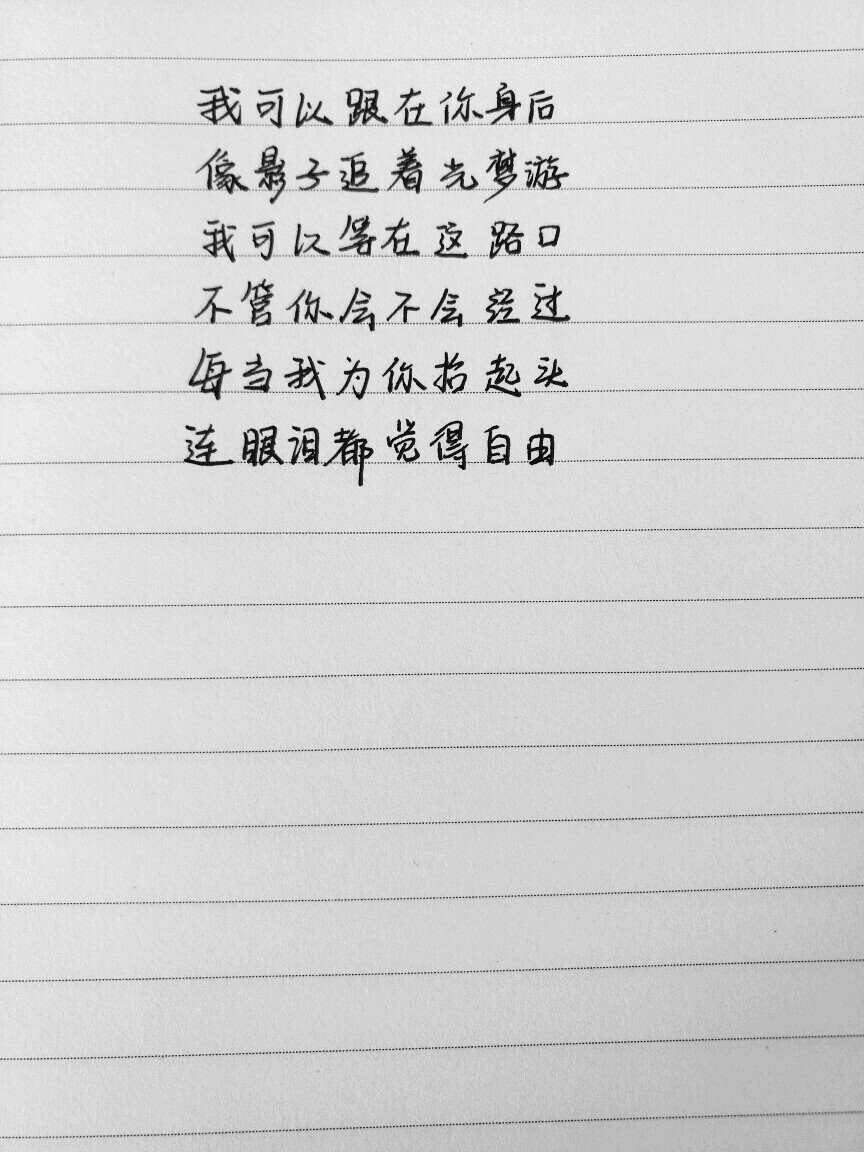 我可以跟在你身后
像影子追着光梦游
我可以等在这路口
不管你会不会经过
每当我为你抬起头
连眼泪都觉得自由